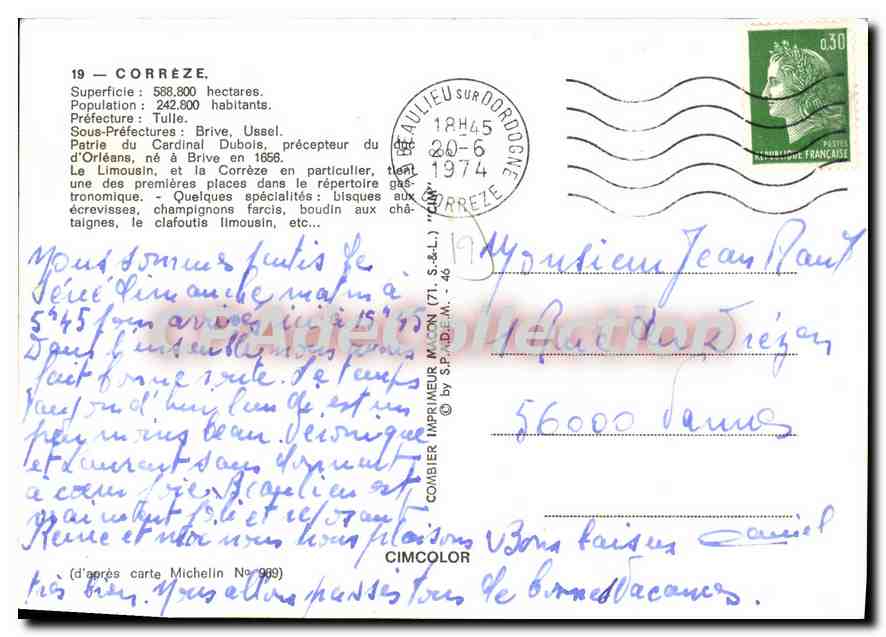 19 — CORRÈZE.
Superficie : 588.800 hectares.
Population : 242.800 habitants.
Préfecture : Tulle.
Sous-Préfectures : Brive, Ussel.
Patrie du Cardinal Dubois, précepteur du duc
d'Orléans, né à Brive en 1656.
Le Limousin, et la Corrèze en particulier, tient
une des premières places dans le répertoire gas-
tronomique. - Quelques spécialités : bisques aux
écrevisses, champignons farcis, boudin aux châ-
taignes, le clafoutis limousin, etc...
Nous sommes partis de
Séné dimanche matin à
5h45 pour arriver ici à 15h15
Dans l'ensemble nous avons
fait bonne route. Le temps
aujourd'hui lundi est un
peu moins beau. Véronique
et Laurent sans dormant
à cœur joie. Beaulieu est
vraiment joli et reposant
Reine et moi nous nous plaisons
très bien. Nous allons passés tous de bonnes Vacances.
Bons baisers Daniel
(d'après carte Michelin No 989)
CIMCOLOR
COMBIER IMPRIMEUR MACON (71. S.-&-L.) "CIM"
© by S.P.A.D.E.M. - 46
BEAULIEU SUR DORDOGNE
18H45
20-6
1974
CORREZE
0,30
POSTES
REPUBLIQUE FRANÇAISE
19
Monsieur Jean
Rue du
56000 Vannes
CPACollection